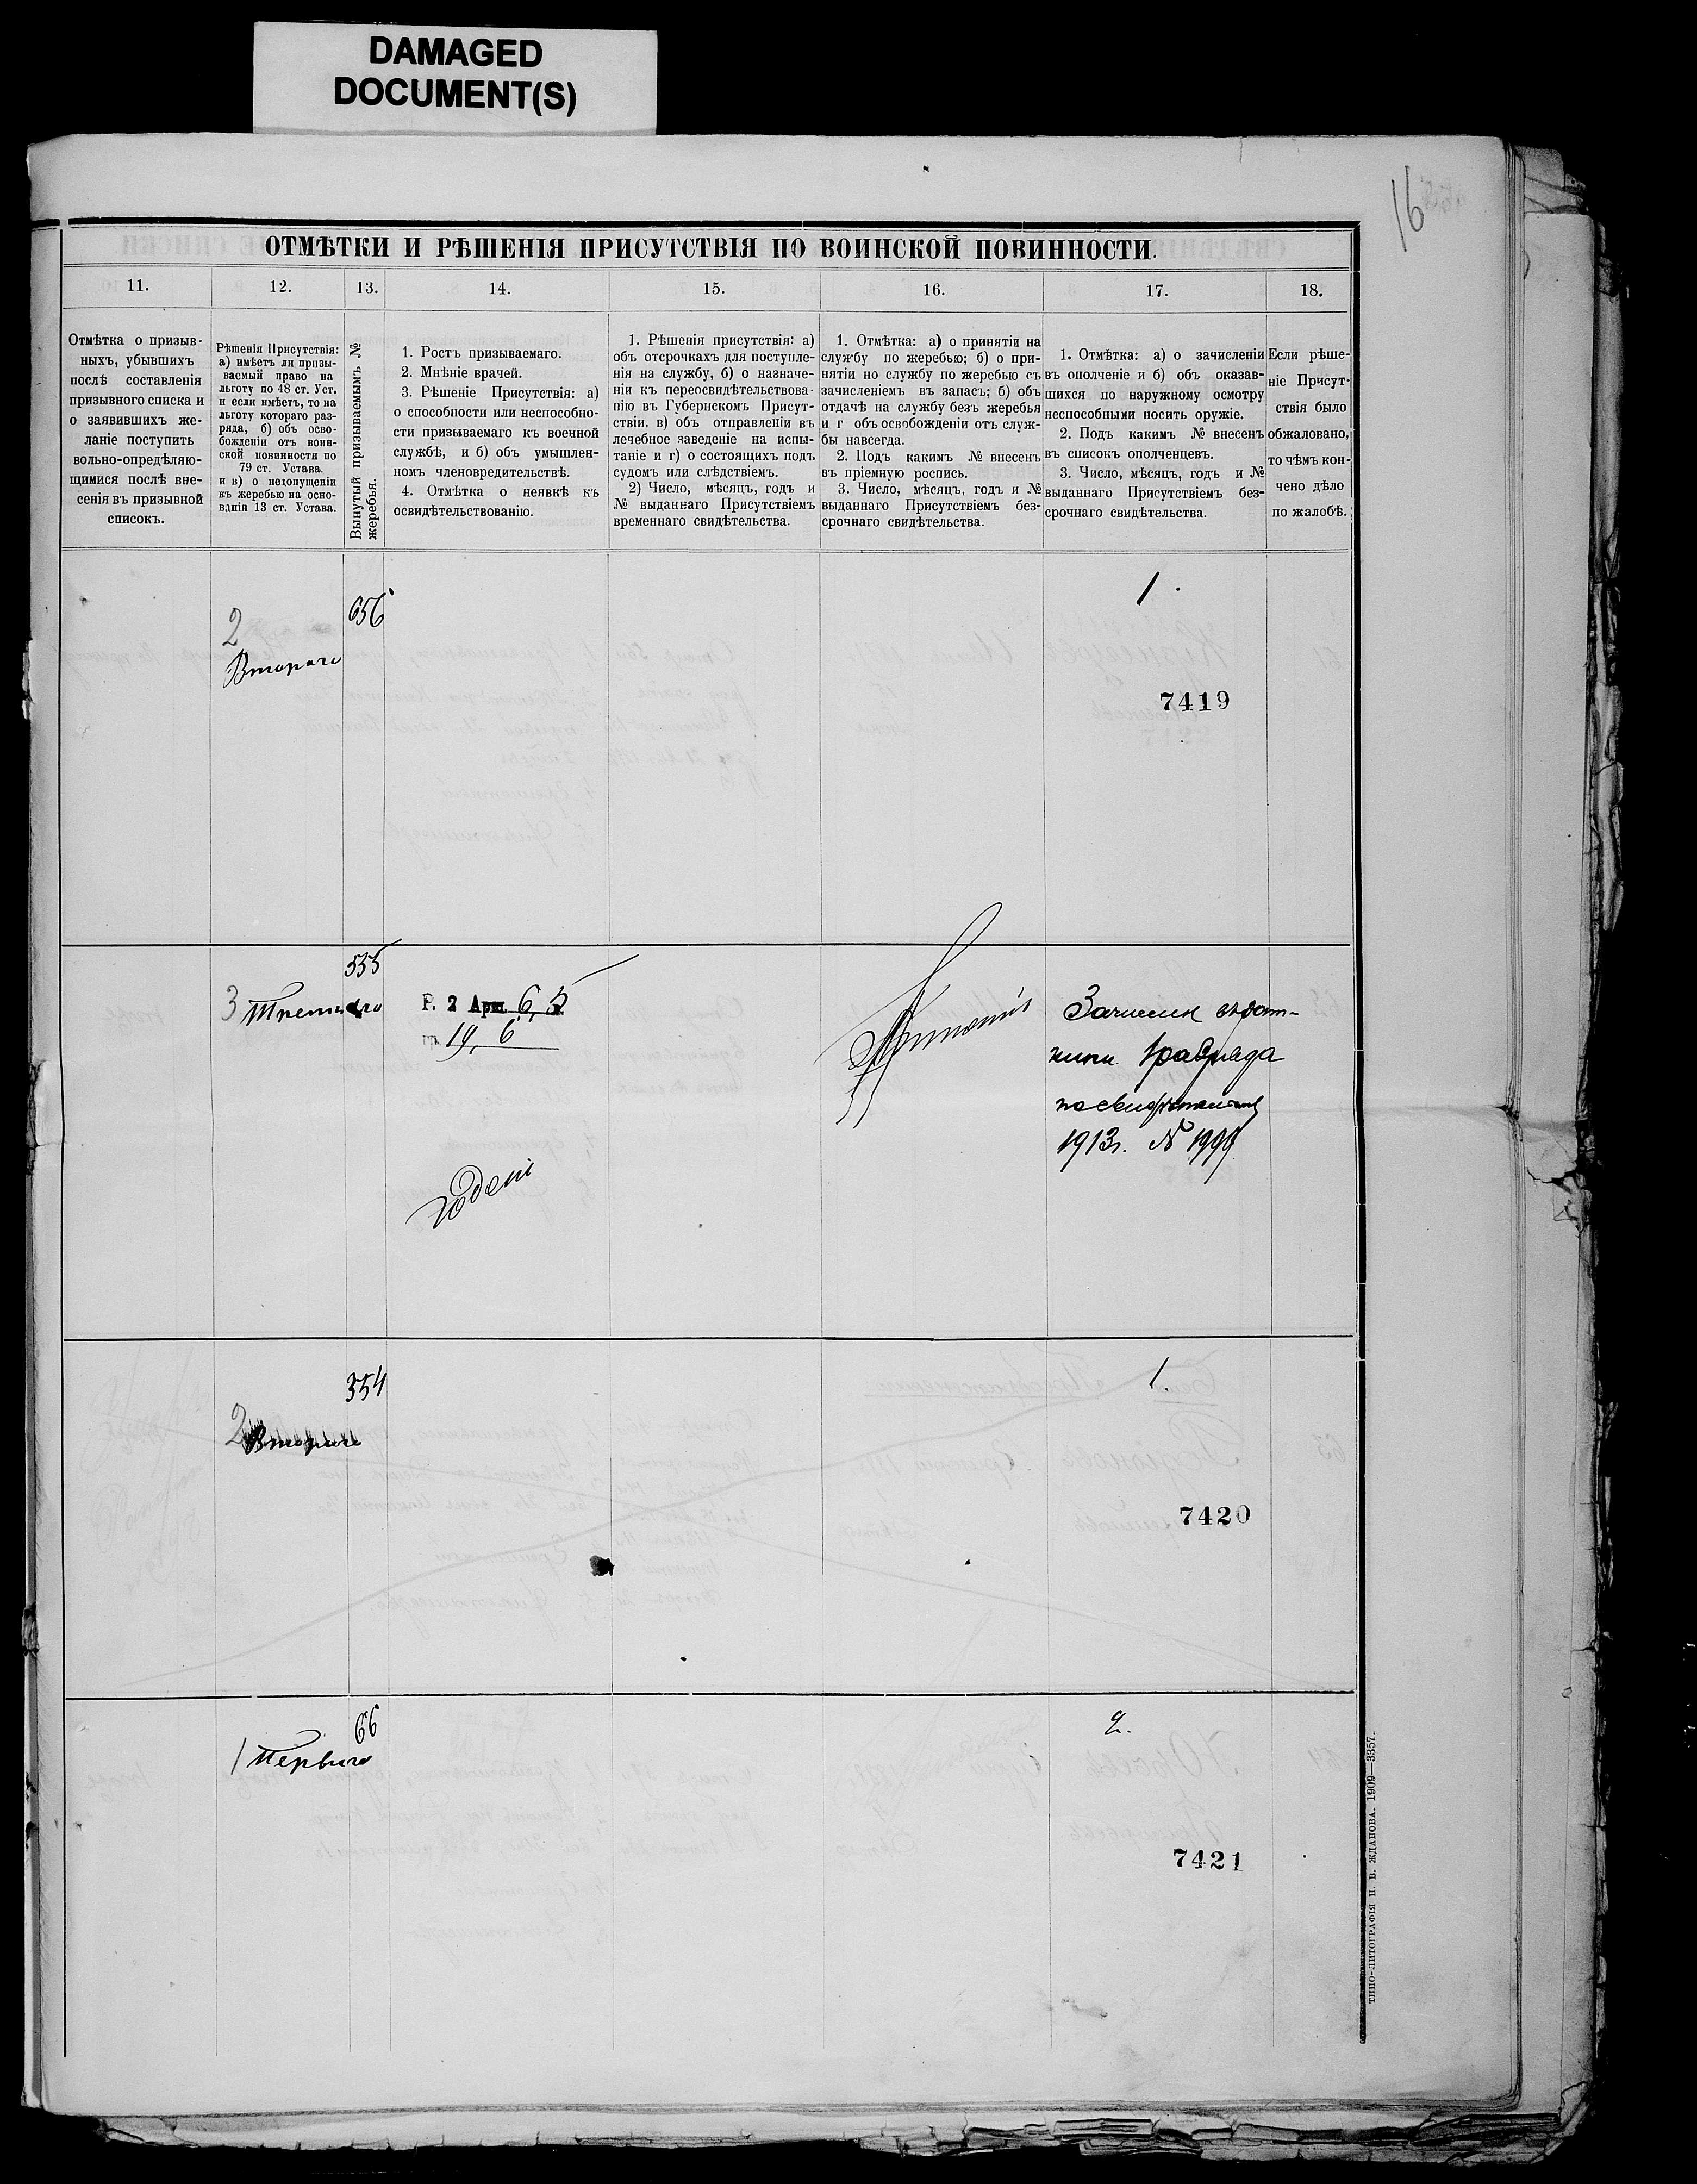 DAMAGED
DOCUMENT(S)
16
ОТМѢТКИ И РѢШЕНІЯ ПРИСУТСТВІЯ ПО ВОИНСКОЙ ПОВИННОСТИ.
11.
12.
13.
14.
15.
16.
17.
18.
Отмѣтка о призыв-
ныхъ, убывшихъ
послѣ составленія
призывного списка и
о заявившихъ же-
ланіе поступить
вольно-опредѣляю-
щимися послѣ вне-
сенія въ призывной
списокъ.
Рѣшенія Присутствія:
а) имѣетъ ли призы-
ваемый право на
льготу по 48 ст. Уст.
и если имѣетъ, то на
льготу котораго раз-
ряда, б) объ осво-
божденіи отъ воин-
ской повинности по
79 ст. Устава.
и в) о недопущеніи
къ жеребью на осно-
ваніи 13 ст. Устава.
Вынутый призываемымъ №
жеребья.
1. Ростъ призываемаго.
2. Мнѣніе врачей.
3. Рѣшеніе Присутствія: а)
о способности или неспособно-
сти призываемаго къ военной
службѣ, и б) объ умышлен-
номъ членовредительствѣ.
4. Отмѣтка о неявкѣ къ
освидѣтельствованію.
1. Рѣшенія присутствія: а)
объ отсрочкахъ для поступле-
нія на службу, б) о назначе-
ніи къ переосвидѣтельствова-
нію въ Губернскомъ Присут-
ствіи, в) объ отправленіи въ
лечебное заведеніе на испы-
таніе и г) о состоящихъ подъ
судомъ или слѣдствіемъ.
2) Число, мѣсяцъ, годъ и
№ выданнаго Присутствіемъ
временнаго свидѣтельства.
1. Отмѣтка: а) о принятіи на
службу по жеребью; б) о при-
нятіи но службу по жеребью съ
зачисленіемъ въ запасъ; б) объ
отдачѣ на службу безъ жеребья
и г объ освобожденіи отъ служ-
бы навсегда.
2. Подъ какимъ № внесенъ
въ пріемную роспись.
3. Число, мѣсяцъ, годъ и №
выданнаго Присутствіемъ без-
срочнаго свидѣтельства.
1. Отмѣтка: а) о зачисленіи
въ ополченіе и б) объ оказав-
шихся по наружному осмотру
неспособными носить оружіе.
2. Подъ какимъ № внесенъ
въ списокъ ополченцевъ.
3. Число, мѣсяцъ, годъ и №
выданнаго Присутствіемъ без-
срочнаго свидѣтельства.
Если рѣше-
ніе Присут-
ствія было
обжаловано,
то чѣмъ кон-
чено дѣло
по жалобѣ.
2
Втораго
656
1.
7419
3 Третьяго
555
Р. 2 Арш. 6,5
гр. 19, 6
Годенъ
Принятъ
Зачислен ратни-
ком 1 разряда
1913г. № 1999
2 Втораго
354
1.
7420
1 Перваго
66
2.
7421
ТИПО-ЛИТОГРАФІЯ П. В. ЖДАНОВА. 1909—3357.